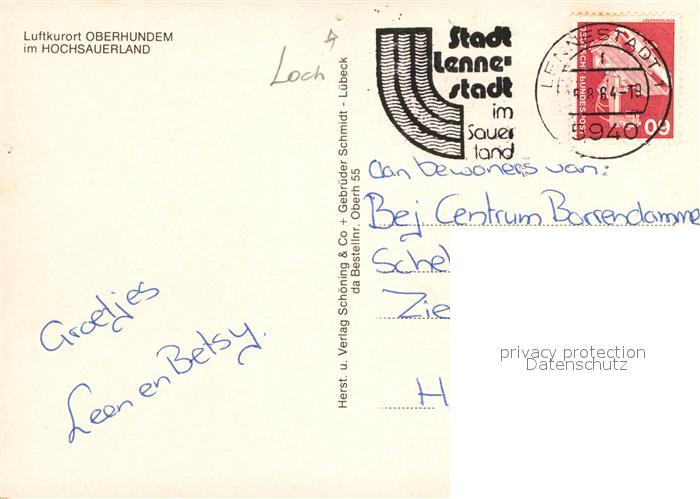 Luftkurort OBERHUNDEM
im HOCHSAUERLAND
Loch
Stadt
Lenne-
stadt
im
Sauer
land
LENNESTADT 1
84-19
5940
DEUTSCHE BUNDESPOST
60
Herst. u. Verlag Schöning & Co + Gebrüder Schmidt - Lübeck
da Bestellnr. Oberh 55
aan bewoners van:
Bej Centrum Borrendamme
Sche
Zie
H
Groetjes
Leen en Betsy.
privacy protection
Datenschutz